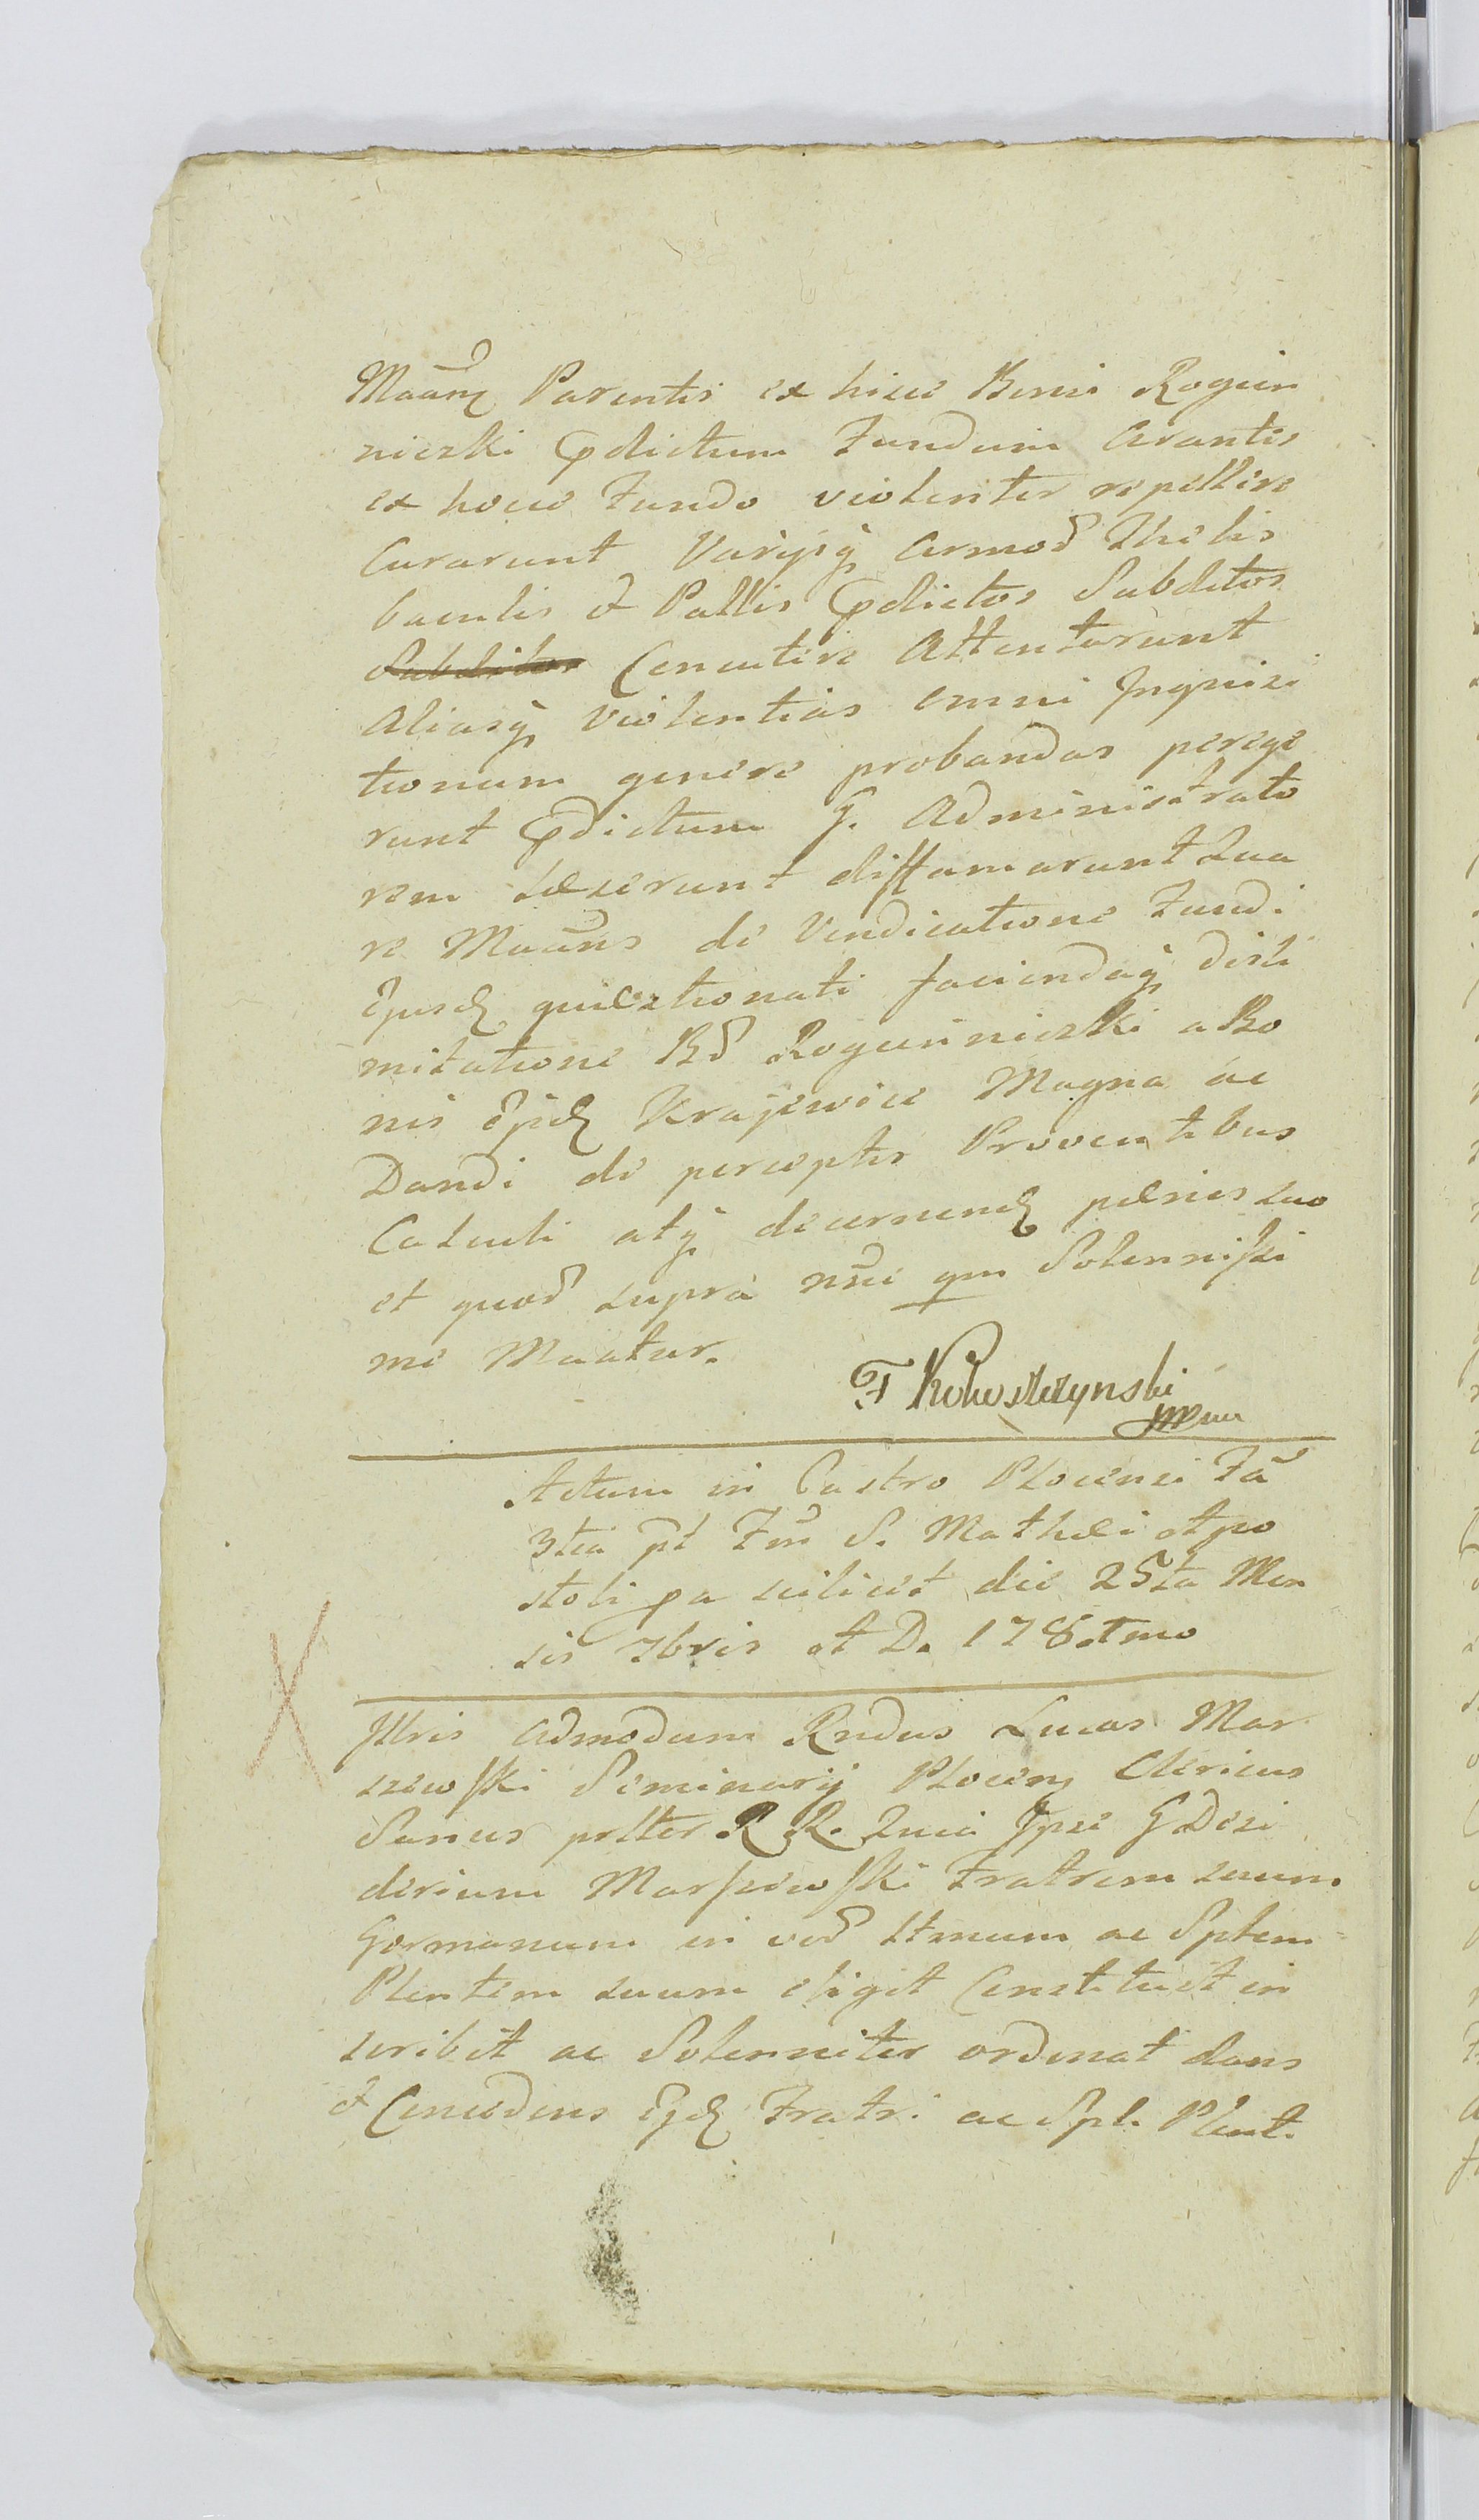 Maãnz Parentis ex hisce Bonis Rogien
niczki pdictum Fundum Arantis
ex hocce Fundo violenter repellere
Curarunt Varijsq Armos Thelis
baculis et Pallis pdictos Subditos
Subditos Concutere Attentarunt
Aliasq violentias omni Inquisi
tionum genere probandas perege
runt pdictum G. Administrato
rem Læserunt diffamarunt Qua
re Maãns de Vendicatione Fundi
Ejusd quæstionati faciendaq disli
mitatione Bd Rogieniczki a Bo
nis Ejsd Krajewice Magna ac
Dandi de perceptis Proventibus
Calculi atq decernend pænis suo
et quod supra nãe qm Solennissi
me Maatur.
F Kokoszczynski
mpm
Actum in Castro Plocensi Fã
3tia pt Fm S. Mathæi Apo
stoli pa scilicet die 25ta Men
sis 7bris A D. 178.tmo
Illris Admodum Rndus Lucas Mar
szewski Seminarij Plocens Clericus
Sanus pltter R R. Quia Ipse G Desi
derium Marszewski Fratrem suum
Germanum in ved Ltmum ac Splem
Plentem suum eligit Constituit in
scribit ac Solenniter ordinat dans
et Concedens Ejd Fratri ac Spl. Plent.